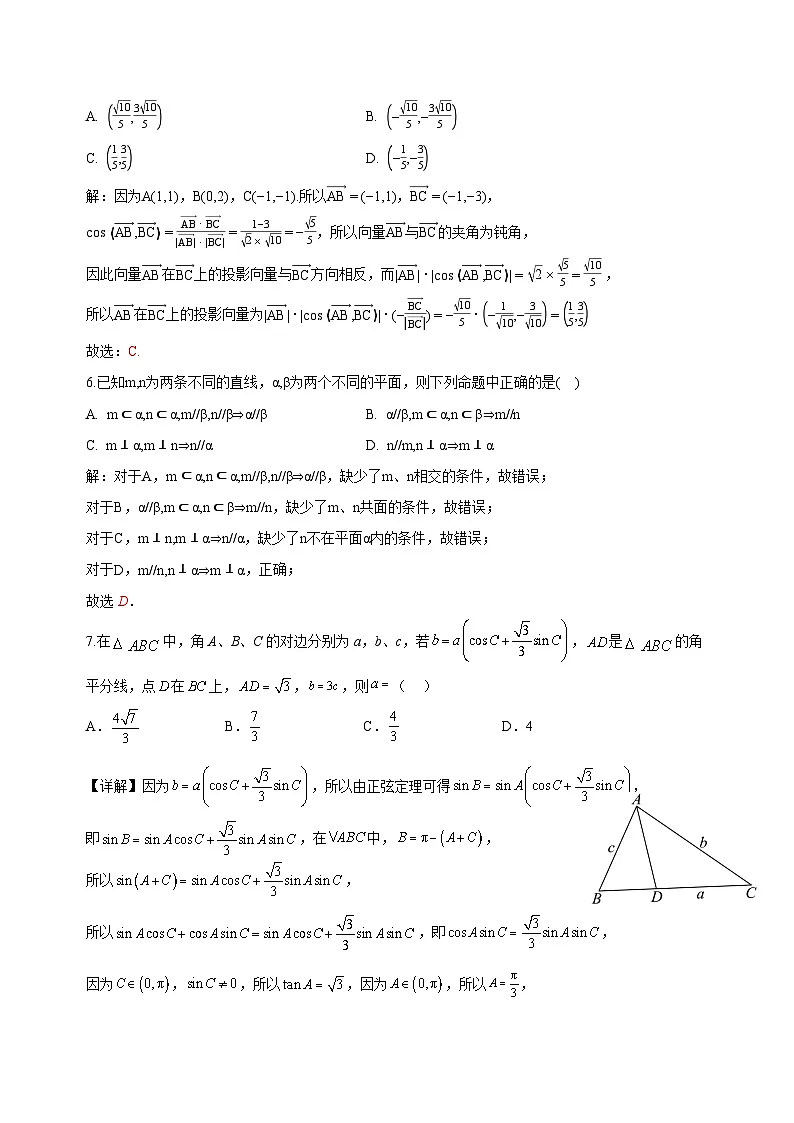 A. (√10/5,3√10/5) B. (−√10/5,−3√10/5)
C. (1/5,3/5) D. (−1/5,−3/5)
解:因为A(1,1),B(0,2),C(−1,−1).所以AB→=(−1,1),BC→=(−1,−3),
cos⟨AB→,BC→⟩=(AB→·BC→)/(|AB→|·|BC→|)=(1−3)/(√2×√10)=−√5/5,所以向量AB→与BC→的夹角为钝角,
因此向量AB→在BC→上的投影向量与BC→方向相反,而|AB→|·|cos⟨AB→,BC→⟩|=√2×√5/5=√10/5,
所以AB→在BC→上的投影向量为|AB→|·|cos⟨AB→,BC→⟩|·(−BC→/|BC→|)=−√10/5·(−1/√10,−3/√10)=(1/5,3/5)
故选:C.
6.已知m,n为两条不同的直线,α,β为两个不同的平面,则下列命题中正确的是( )
A. m⊂α,n⊂α,m//β,n//β⇒α//β B. α//β,m⊂α,n⊂β⇒m//n
C. m⊥α,m⊥n⇒n//α D. n//m,n⊥α⇒m⊥α
解:对于A,m⊂α,n⊂α,m//β,n//β⇒α//β,缺少了m、n相交的条件,故错误;
对于B,α//β,m⊂α,n⊂β⇒m//n,缺少了m、n共面的条件,故错误;
对于C,m⊥n,m⊥α⇒n//α,缺少了n不在平面α内的条件,故错误;
对于D,m//n,n⊥α⇒m⊥α,正确;
故选D.
7.在△ABC中,角A、B、C的对边分别为a,b,c,若b=a(cosC+√3/3sinC),AD是△ABC的角
平分线,点D在BC上,AD=√3,b=3c,则a=( )
A.4√7/3 B.7/3 C.4/3 D.4
【详解】因为b=a(cosC+√3/3sinC),所以由正弦定理可得sinB=sinA(cosC+√3/3sinC),
即sinB=sinAcosC+√3/3sinAsinC,在VABC中,B=π−(A+C),
所以sin(A+C)=sinAcosC+√3/3sinAsinC,
所以sinAcosC+cosAsinC=sinAcosC+√3/3sinAsinC,即cosAsinC=√3/3sinAsinC,
因为C∈(0,π),sinC≠0,所以tanA=√3,因为A∈(0,π),所以A=π/3,
A
c
b
B
D
a
C